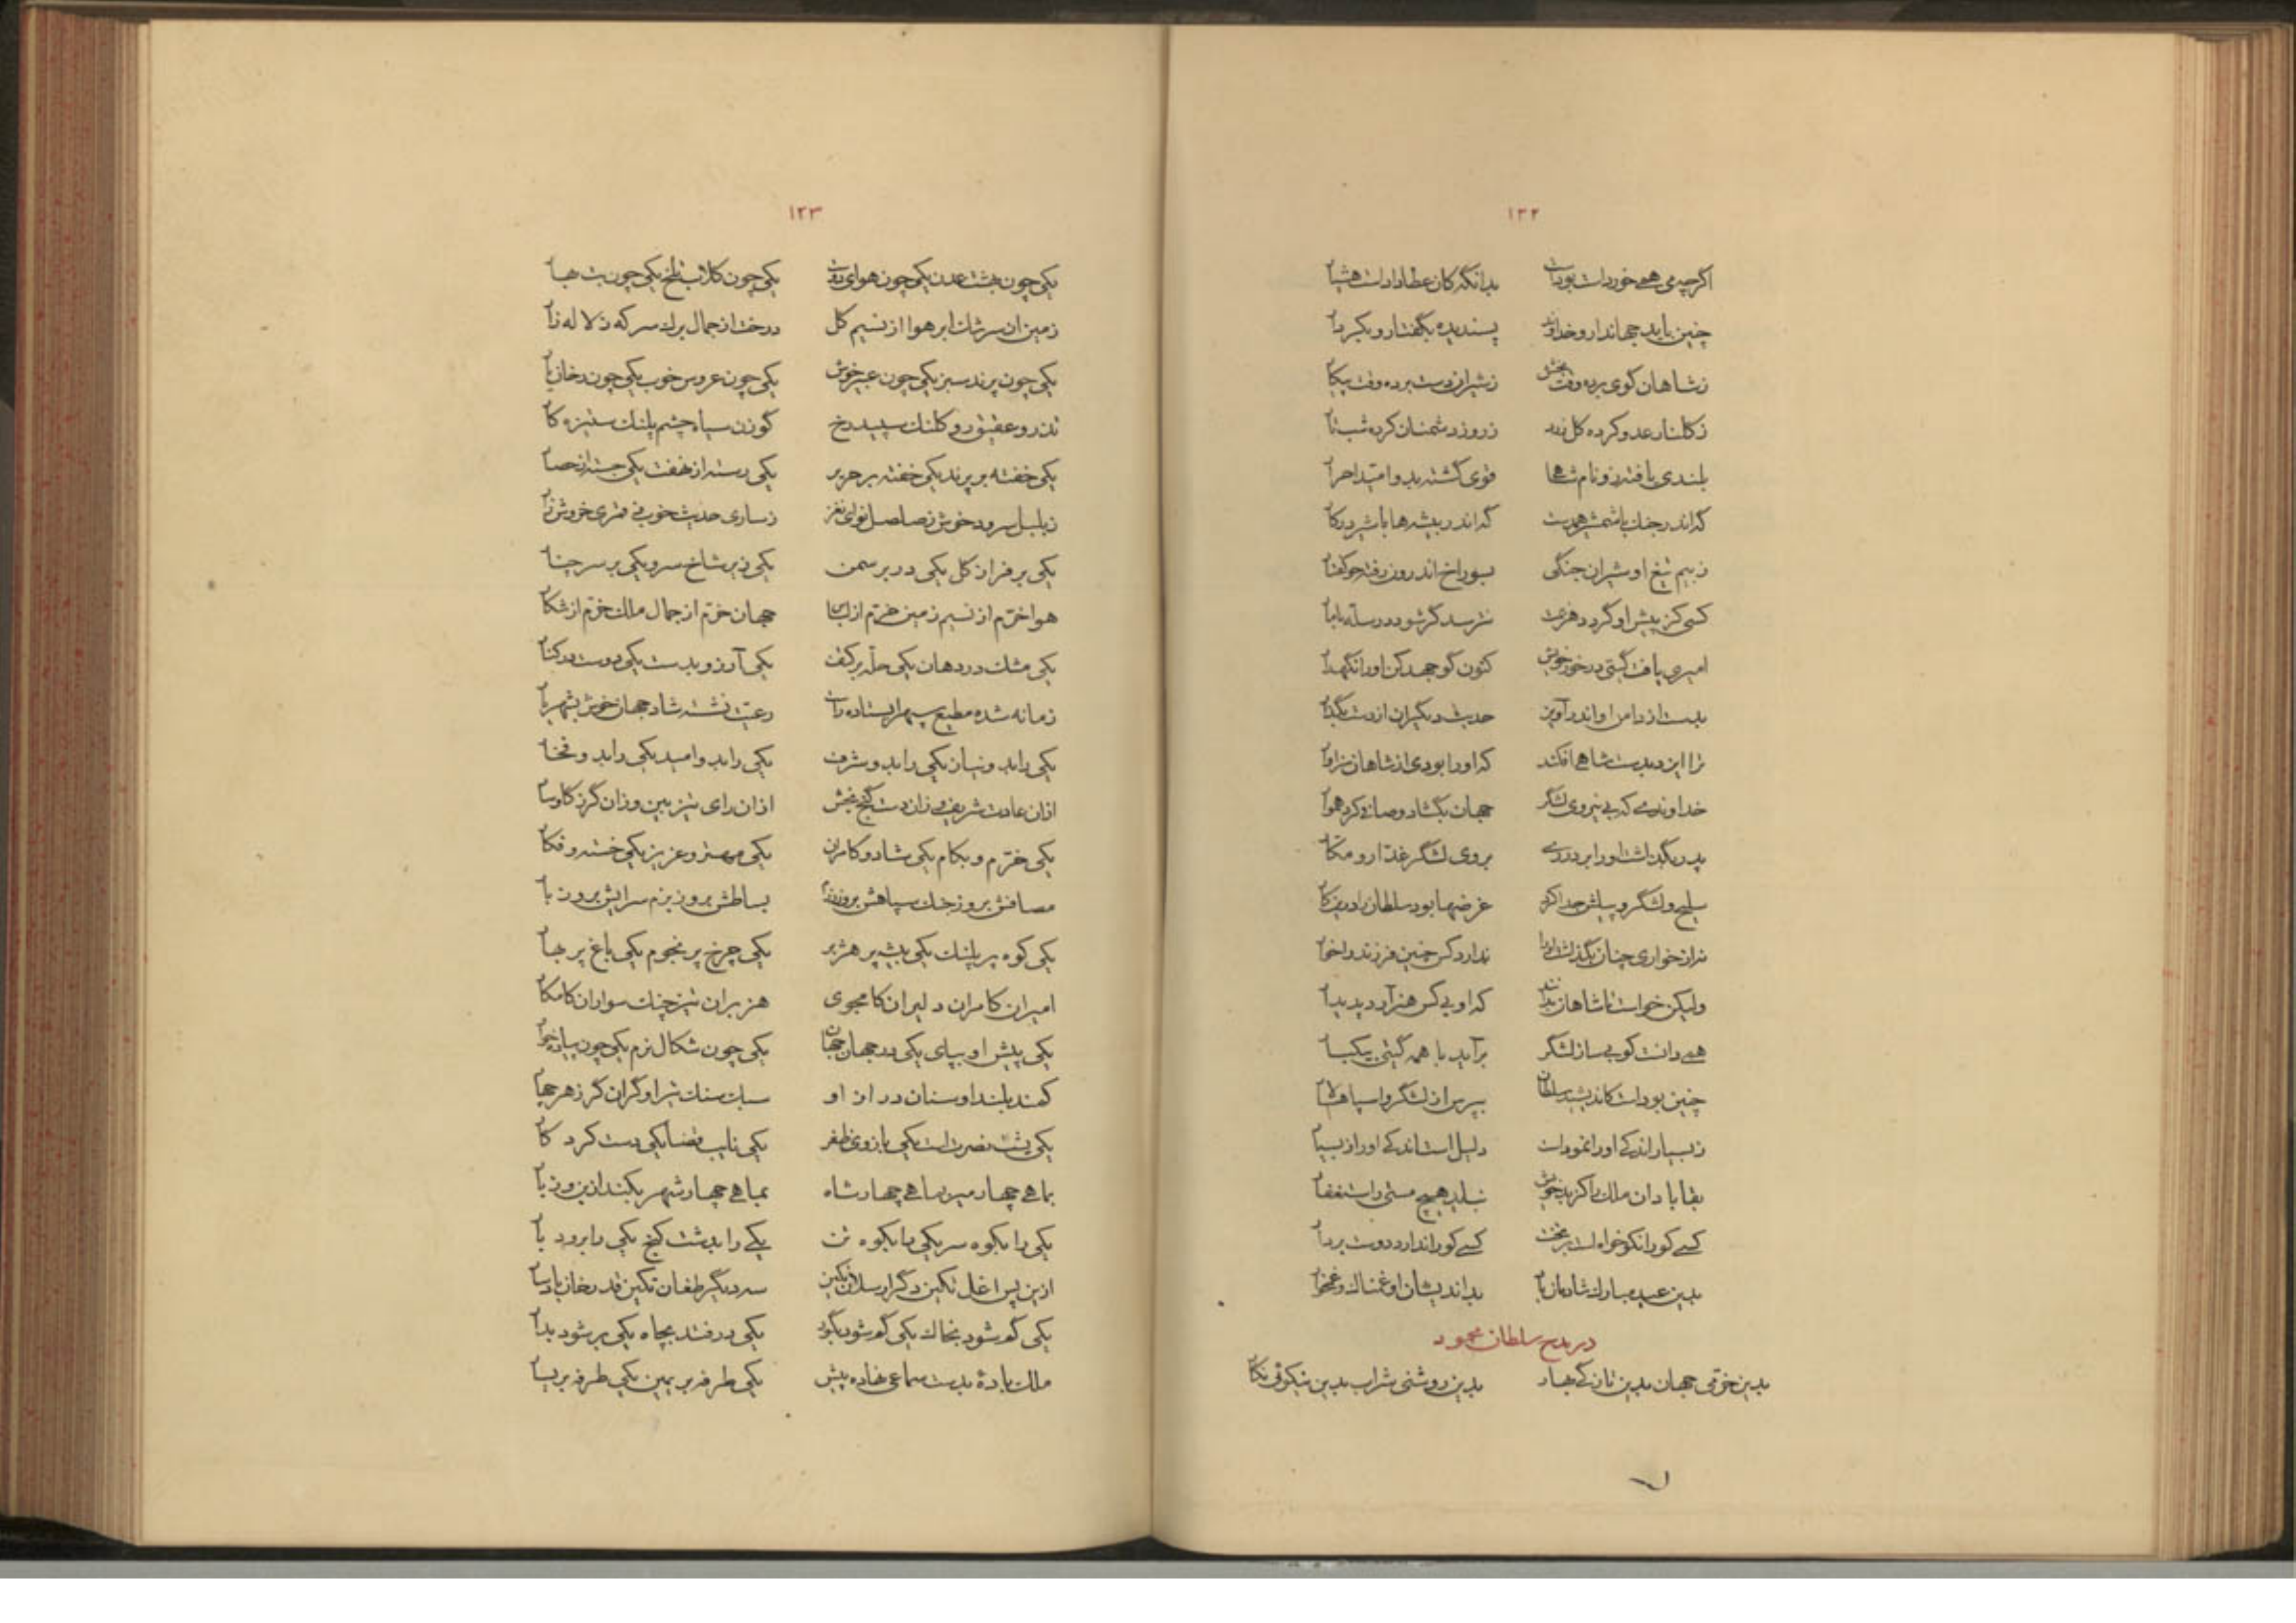 ۱۲۲
اگرچه می همی خوردست بودست بدانگه کان عطا دادست هشیار
چنین باید جهاندار و خداوند پسندیده بگفتار و بکردار
ز شاهان گوی برده وقت بخشش ز شیران دست برده وقت پیکار
ز گلنار عدو کرده گل زرد ز روز دشمنان کرده شب تار
بلندی یافته زو نام شاهی قوی گشته بدو امید احرار
گه اندر جنگ با شمشیر همدست گه اندر بیشه‌ها با شیر در کار
ز بیم تیغ او شیران جنگی بسوراخ اندرون رفته چو کفتار
کسی کز پیش او گردد هزیمت نترسد گر شود در سله با مار
امیری یافت گیتی در خور خویش کنون گو جهد کن او را نگهدار
بدست از دامن او اندر آویز حدیث دیگران از دست بگذار
ترا این دست شاهی افکند که او را بودی از شاهان سزاوار
خداوندی که بی نیروی لشگر جهان بگشاد و صافی کرد هموار
پدر بگذاشت او را بر در ری بروی لشگر غدار و مکار
سلیح و لشگر و پیلش جدا کرد غرضها بود سلطان را درین کار
نه از خواری چنان بگذاشت او را ندارد کس چنین فرزند را خوار
ولیکن خواست تا شاهان بدانند که او بی کس هنر آرد پدیدار
همی دانست کو بی ساز لشگر برآید با همه گیتی بیکبار
چنین بودست کاندیشید سلطان بپرس از لشگر و اسپاهسالار
ز بسیار اندکی او را نمودست دلیل است اندکی او را ز بسیار
بقا بادا آن ملک را کز بد خویش نیابد هیچ مستی را ستغفار
کسی کو را نکو خواه است بر تخت کسی کو را ندارد دوست بر دار
بدین عید مبارک شادمان باد بد اندیشان او غمناک و غمخوار
در مدح سلطان محمود
بدین خرمی جهان بدین تازگی بهار بدین روشنی شراب بدین نیکوئی نگار
۱۲۳
یکی چون بهشت عدن یکی چون هوای دوست یکی چون گلاب تلخ یکی چون بت بهار
زمین از سرشک ابر هوا از نسیم گل درخت از جمال برگ سر که ز لاله زار
یکی چون پرند سبز یکی چون عبیر خوش یکی چون عروس خوب یکی چون رخان یار
تذرو عقیق رو کلنگ سپید رخ گوزن سیاه چشم پلنگ ستیزه کار
یکی خفته بر پرند یکی خفته بر حریر یکی رسته از نهفت یکی جسته از حصار
ز بلبل سرود خوش ز صلصل نوای نغز ز ساری حدیث خوب ز قمری خروش زار
یکی بر فراز گل یکی در بر سمن یکی زیر شاخ سرو یکی بر سر چنار
هوا خرم از نسیم زمین خرم از لباس جهان خرم از جمال ملک خرم از شکار
یکی مشک در دهان یکی حله بر کتف یکی آرزو بدست یکی دوست در کنار
زمانه شده مطیع سپهر ایستاده راست رعیت نشسته شاد جهان خوش بشهریار
یکی را بدو نیاز یکی را بدو شرف یکی را بدو امید یکی را بدو فخار
ازان عادت شریف و زان دست گنج بخش ازان رای تیز بین وزان گرز گاوسار
یکی خرم و بکام یکی شاد و کامران یکی مهتر و عزیز یکی خسته و فکار
مصافش بروز جنگ سپاهش بروز رزم بساطش بروز بزم سرایش بروز بار
یکی کوه پر پلنگ یکی بیشه پر هژبر یکی چرخ پر نجوم یکی باغ پر بهار
امیران کامران دلیران کامجوی هزبران تیز چنگ سواران کامکار
یکی پیش او بپای یکی در جهان جهان یکی چون شکال نرم یکی چون پیاده خوار
کمند بلند او سنان دراز او سبک سنگ تیر او گران گرز هر چهار
یکی پشت نصرتست یکی بازوی ظفر یکی نایب قضا یکی دست کردگار
بماهی چهار میر بماهی چهار شاه بماهی چهار شهر بکند از بن و ز بار
یکی را بکوه سر یکی را بکوه تن یکی را بدشت گنج یکی را برود بار
ازین پس اغل تکین دگر ارسلان تکین سه دیگر طغان تکین قدرخان بادسار
یکی گم شود بخاک یکی گم شود بگور یکی در فتد بچاه یکی بر شود بدار
ملک باده بدست سماعی نهاده پیش یکی طرفه بر یمین یکی طرفه بر یسار